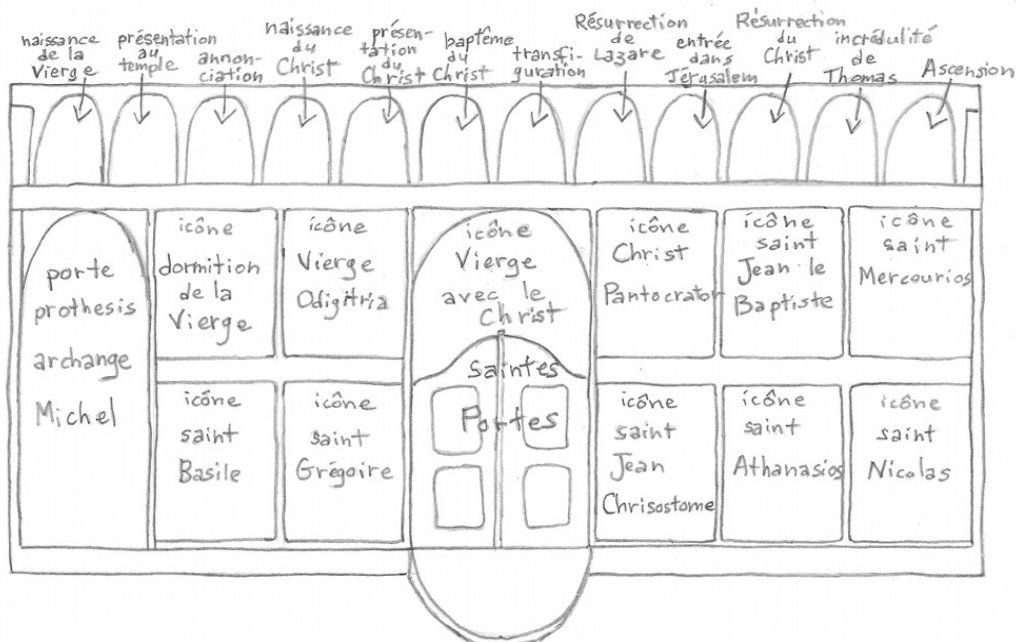 naissance
de la
Vierge
présentation
au
temple
annon-
ciation
naissance
du
Christ
présen-
tation
du
Christ
baptême
du
Christ
transfi-
guration
Résurrection
de
Lazare
entrée
dans
Jérusalem
Résurrection
du
Christ
incrédulité
de
Thomas
Ascension
porte
prothesis
archange
Michel
icône
dormition
de la
Vierge
icône
Vierge
Odigitria
icône
Vierge
avec le
Christ
icône
Christ
Pantocrator
icône
saint
Jean le
Baptiste
icône
saint
Mercourios
icône
saint
Basile
icône
saint
Grégoire
Saintes
Portes
icône
saint
Jean
Chrisostome
icône
saint
Athanasios
icône
saint
Nicolas